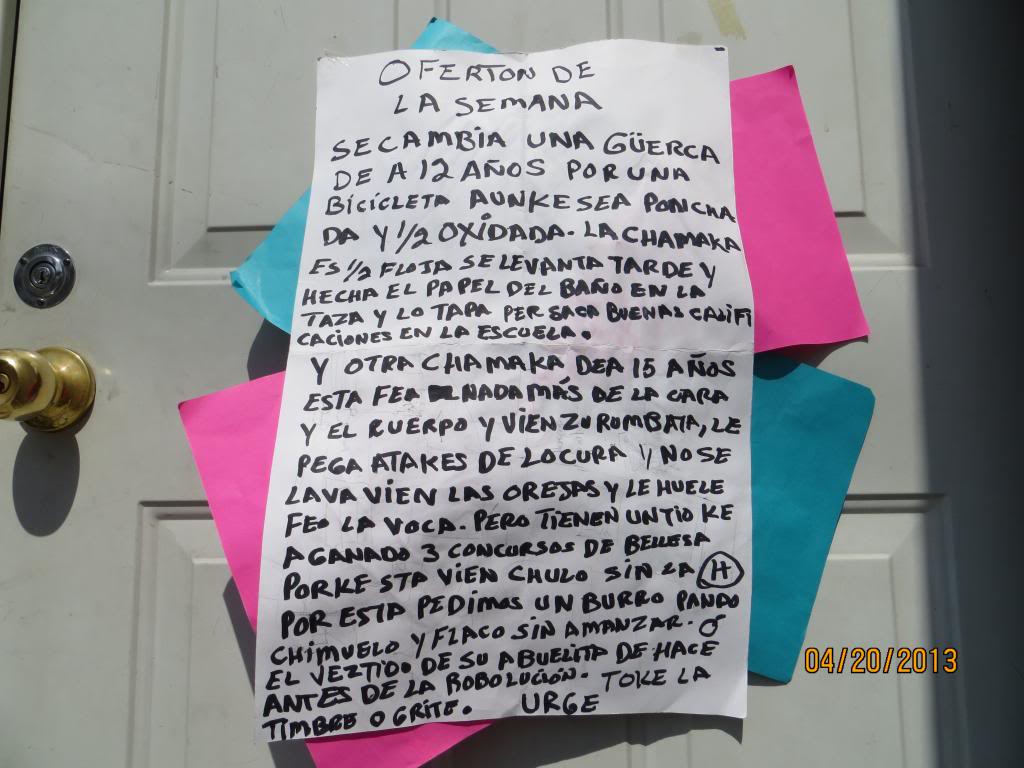 OFERTON DE
LA SEMANA
SE CAMBIA UNA GÜERCA
DE A 12 AÑOS POR UNA
BICICLETA AUNKE SEA PONCHA
DA Y 1/2 OXIDADA. LA CHAMAKA
ES 1/2 FLOJA SE LEVANTA TARDE Y
HECHA EL PAPEL DEL BAÑO EN LA
TAZA Y LO TAPA PER SACA BUENAS CALIFI
CACIONES EN LA ESCUELA.
Y OTRA CHAMAKA DE A 15 AÑOS
ESTA FEA NADA MÁS DE LA CARA
Y EL KUERPO Y VIEN ZURUMBATA, LE
PEGA ATAKES DE LOCURA Y NO SE
LAVA VIEN LAS OREJAS Y LE HUELE
FEO LA VOCA. PERO TIENEN UN TIO KE
A GANADO 3 CONCURSOS DE BELLESA
PORKE STA VIEN CHULO SIN LA H
POR ESTA PEDIMOS UN BURRO PANDO
CHIMUELO Y FLACO SIN AMANZAR. O
EL VEZTIDO DE SU ABUELITA DE HACE
ANTES DE LA ROBOLUCIÓN. TOKE LA
TIMBRE O GRITE. URGE
04/20/2013